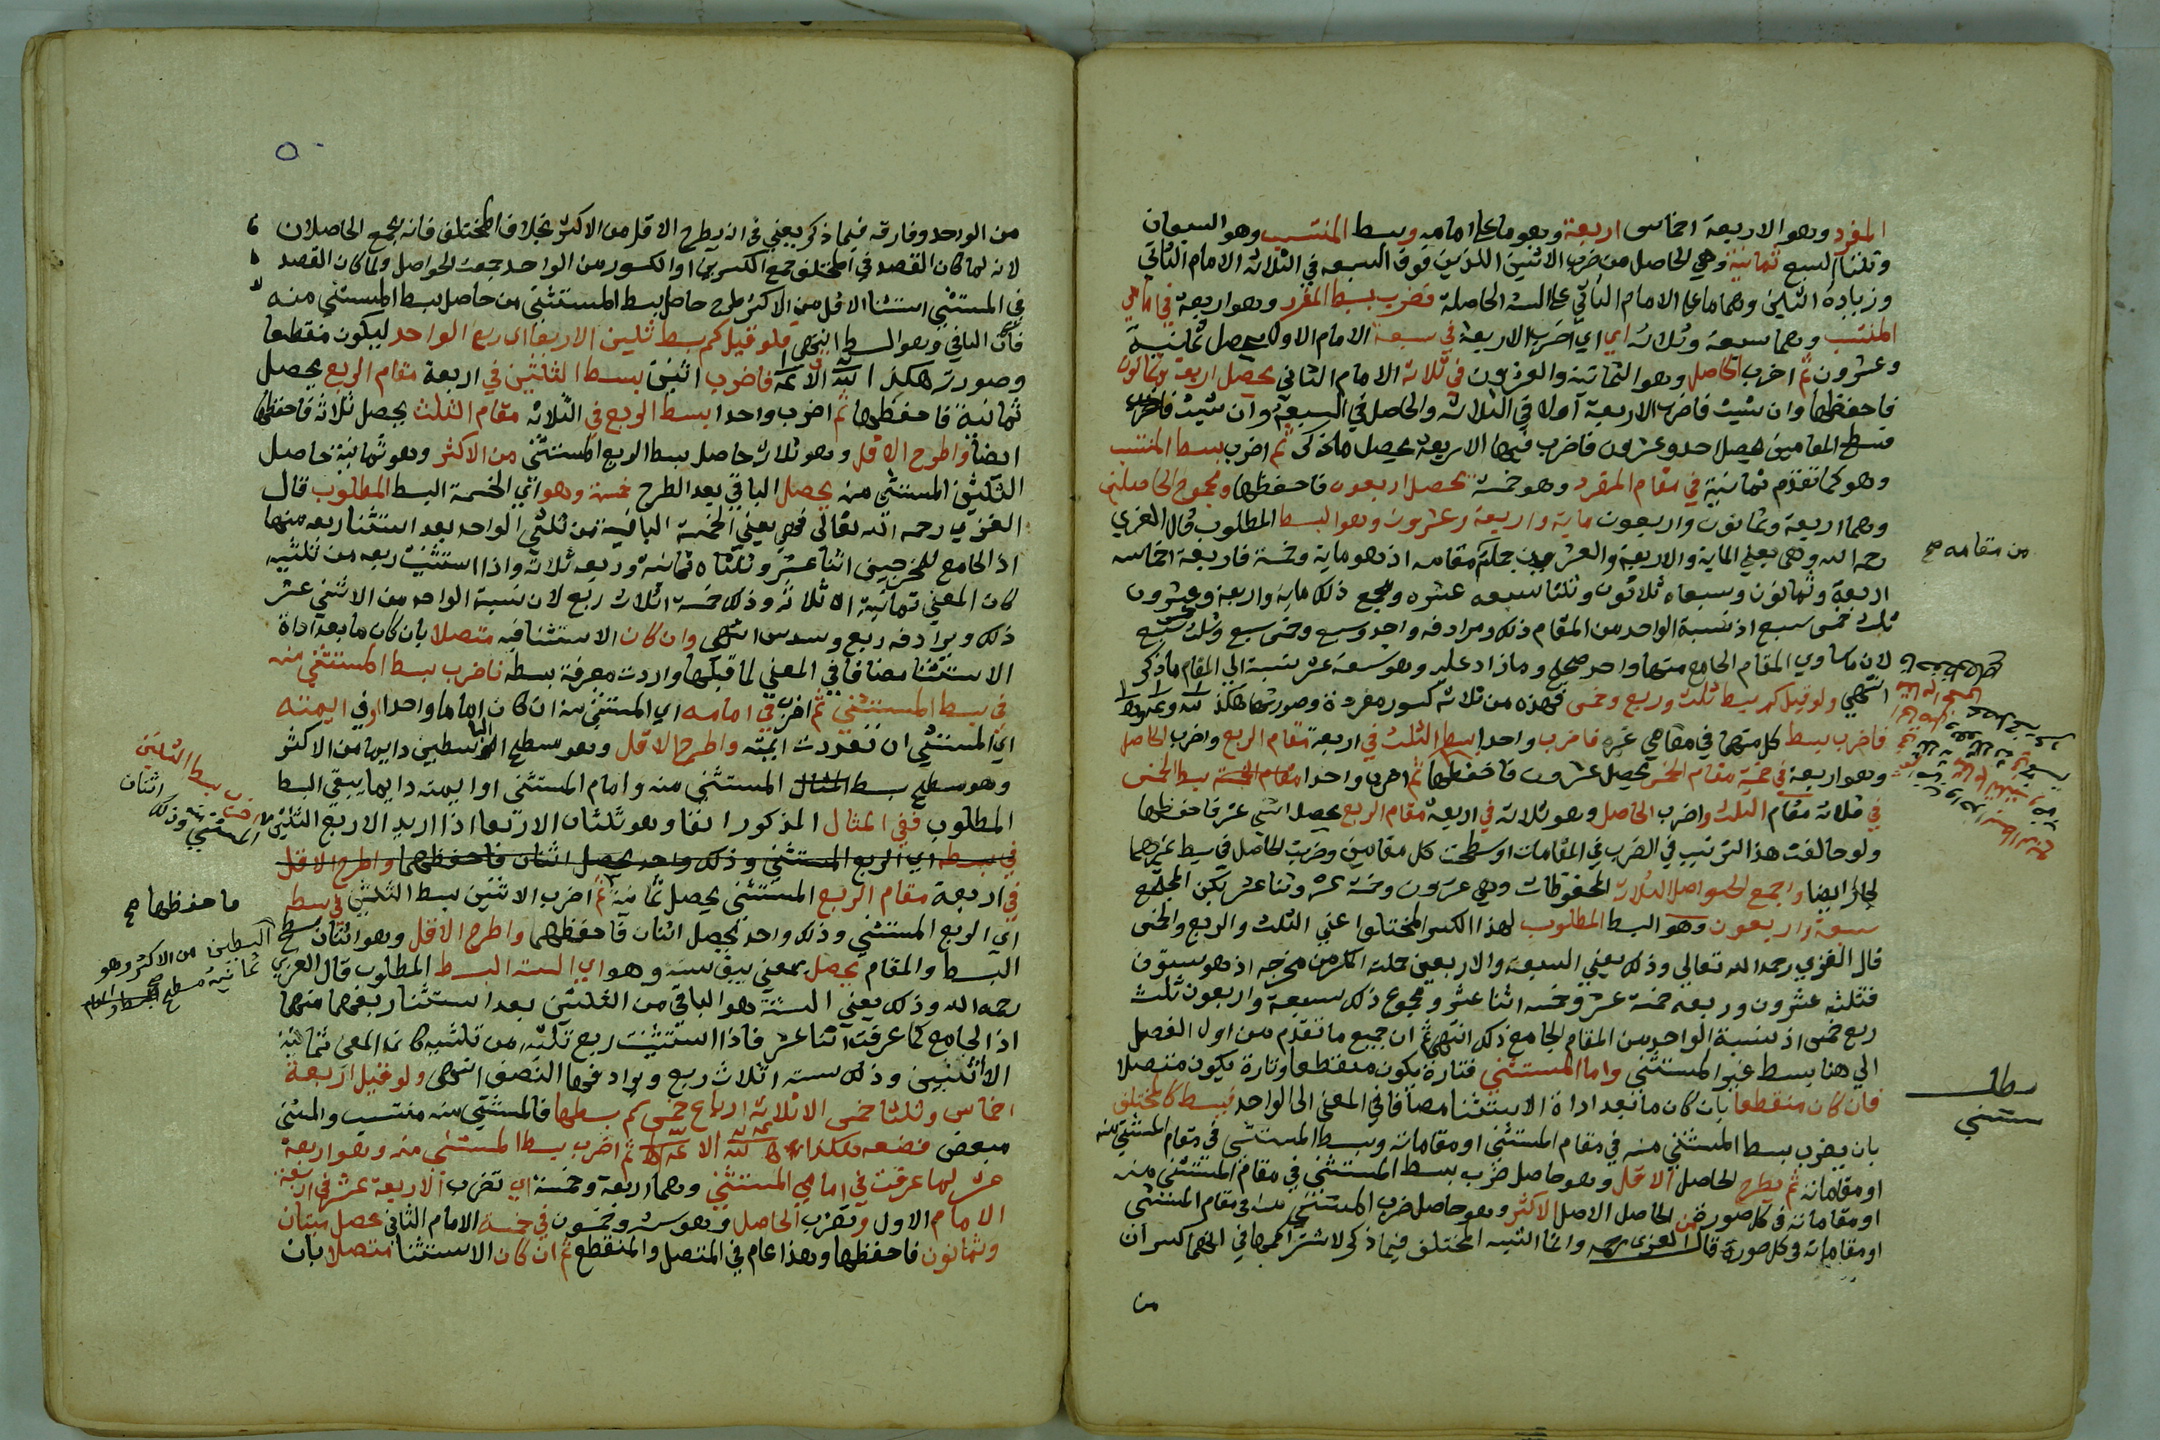 المفرد وهو الاربعة اخماس اربعة وهو ما على امامه وبسط المنتسب وهو السبعان
وثلثا السبع ثمانية وهي الحاصل من ضرب الاثنين اللذين فوق السبعة في الثلاثة الامام الثاني
وزيادة الثلثين وهما ما على الامام الثاني على الستة الحاصلة فضرب بسط المفرد وهو اربعة في امامي
المنتسب وهما سبعة وثلاثة اي اضرب الاربعة في سبعة الامام الاول يحصل ثمانية
وعشرون ثم اضرب الحاصل وهو الثمانية والعشرون في ثلاثة الامام الثاني يحصل اربعة وثمانون
فاحفظها وان شئت فاضرب الاربعة اولا في الثلاثة والحاصل في السبعة وان شئت فاضرب
مسطح المقامين يحصل احد وعشرون فاضرب فيها الاربعة يحصل ما ذكر ثم اضرب بسط المنتسب
وهو كما تقدم ثمانية في مقام المفرد وهو خمسة يحصل اربعون فاحفظها ومجموع الحاصلين
وهما اربعة وثمانون واربعون ماية واربعة وعشرون وهو البسط المطلوب قال الغزي
رحمه الله وهي يعني الماية والاربعة والعشرين جملة مقامه اذ هو ماية وخمسة فاربعة اخماسه
اربعة وثمانون وسبعاه ثلاثون وثلثا سبعه عشرة ومجموع ذلك ماية واربعة وعشرون
ثلث خمس سبع اذ نسبة الواحد من المقام ذلك ومرادفه واحد وسبع وخمس سبع وثلث خمس سبع
لان ما ساوي المقام الجامع منها واحد صحيح وما زاد عليه وهو تسعة عشر بنسبته الى المقام ما ذكر
انتهى ولو قيل كم بسط ثلث وربع وخمس فهذه من ثلاثة كسور مفردة وصورتها هكذا
فاضرب بسط كل منها في مقامي غيره فاضرب واحدا بسط الثلث في اربعة مقام الربع واضرب الحاصل
وهو اربعة في خمسة مقام الخمس يحصل عشرون فاحفظها ثم اضرب واحدا بسط الخمس
في ثلاثة مقام الثلث واضرب الحاصل وهو ثلاثة في اربعة مقام الربع يحصل اثنى عشر فاحفظها
ولو خالفت هذا الترتيب في الضرب في المقامات او سطحت كل مقامين وضربت الحاصل في بسط غيرهما
لجاز ايضا واجمع الحواصل الثلاث المحفوظات وهي عشرون وخمسة عشر واثنا عشر يكن المجتمع
سبعة واربعون وهو البسط المطلوب لهذا الكسر المختلف اعني الثلث والربع والخمس
قال الغزي رحمه الله تعالى وذلك يعني السبعة والاربعين جملة الكسر من مخرجه اذ هو ستون
فثلثه عشرون وربعه خمسة عشر وخمسه اثنا عشر ومجموع ذلك سبعة واربعون ثلث
ربع خمس اذ نسبة الواحد من المقام الجامع ذلك انتهى ثم ان جميع ما تقدم من اول الفصل
الى هنا بسط غير المستثنى واما المستثنى فتارة يكون منقطعا وتارة يكون متصلا
فان كان منقطعا بان كان ما بعد اداة الاستثنا مضافا في المعنى الى الواحد فبسطه كالمختلق
بان يضرب بسط المستثنى منه في مقام المستثنى او مقاماته وبسط المستثنى في مقام المستثنى منه
او مقاماته ثم يطرح الحاصل الاقل وهو حاصل ضرب بسط المستثنى في مقام المستثنى منه
او مقاماته في كل صورة من الحاصل الاكثر وهو حاصل ضرب المستثنى منه في مقام المستثنى
او مقاماته في كل صورة قال الغزي رحمه وانما اشبه المختلف فيما ذكر لاشتراكهما في انهما كسران
من
من مقامه صح
مطلب
مستثنى
من الواحد وفارقه فيما ذكر يعني في انه يطرح الاقل من الاكثر بخلاف المختلف فانه يجمع الحاصلان
لانه لما كان القصد في المختلف جمع الكسرين او الكسور من الواحد جمعت الحواصل ولما كان القصد
في المستثنى استثنا الاقل من الاكثر طرح حاصل بسط المستثنى من حاصل بسط المستثنى منه
فكان الباقي وهو البسط انتهى فلو قيل كم بسط ثلثين الا ربعا اي ربع الواحد ليكون منقطعا
وصورته هكذا فاضرب اثنين بسط الثلثين في اربعة مقام الربع يحصل
ثمانية فاحفظها ثم اضرب واحدا بسط الربع في الثلاثة مقام الثلث يحصل ثلاثة فاحفظها
ايضا واطرح الاقل وهو ثلاثة حاصل بسط الربع المستثنى من الاكثر وهو ثمانية حاصل
الثلثين المستثنى منه يحصل الباقي بعد الطرح خمسة وهو اي الخمسة البسط المطلوب قال
الغزي رحمه الله تعالى فهي يعني الخمسة الباقية من ثلثي الواحد بعد استثنا ربعه منها
اذ الجامع للمخرجين اثنا عشر وثلثاه ثمانية وربعه ثلاثة واذا استثنيت ربعه من ثلثيه
كان المعنى ثمانية الا ثلاثة وذلك خمسة اثلاث ربع لان نسبة الواحد من الاثنى عشر
ذلك ويرادفه ربع وسدس انتهى وان كان الاستثنا فيه متصلا بان كان ما بعد اداة
الاستثنا مضافا في المعنى لما قبلها واردت معرفة بسطه فاضرب بسط المستثنى منه
في بسط المستثنى ثم اضرب في امامه اي المستثنى منه ان كان اماما واحدا او في ايمته
اي المستثنى ان تعددت ايمته واطرح الاقل وهو مسطح البسطين دايما من الاكثر
وهو مسطح بسط المستثنى منه وامام المستثنى او ايمته دايما يبقى البسط
المطلوب ففي المثال المذكور انفا وهو ثلثان الا ربعا اذا اريد الا ربع الثلثين
في بسطه اي الربع المستثنى وذلك واحد يحصل اثنان فاحفظهما واطرح الاقل
في اربعة مقام الربع المستثنى يحصل ثمانية ثم اضرب الاثنين بسط الثلثين في بسط
اي الربع المستثنى وذلك واحد يحصل اثنان فاحفظهما واطرح الاقل وهو اثنان مسطح
البسط والمقام يحصل بمعنى يبقى ستة وهو اي الستة البسط المطلوب قال الغزي
رحمه الله وذلك يعني الستة هو الباقي من الثلثين بعد استثنا ربعهما منهما
اذ الجامع كما عرفت اثنا عشر فاذا استثنيت ربع ثلثيه من ثلثيه كانه المعنى ثمانية
الا اثنين وذلك ستة اثلاث ربع ويرادفها النصف انتهى ولو قيل اربعة
اخماس وثلثا خمس الا ثلاثة ارباع خمس كم بسطها فالمستثنى منه منتسب والمستثنى
مبعض فضعه هكذا ثم اضرب بسط المستثنى منه وهو اربعة
عشر لما عرفت في امامي المستثنى وهما اربعة وخمسة اي تضرب الاربعة عشر في اربعة
الامام الاول وتضرب الحاصل وهو ستة وخمسون في خمسة الامام الثاني يحصل ميتان
وثمانون فاحفظها وهذا عام في المتصل والمنقطع ثم ان كان الاستثنا متصلا بان
فاضرب بسط الثلثين
اثنان
المستثنى منه وذلك
ما حفظها صح
البسطين من الاكثر وهو
ثمانية مسطح